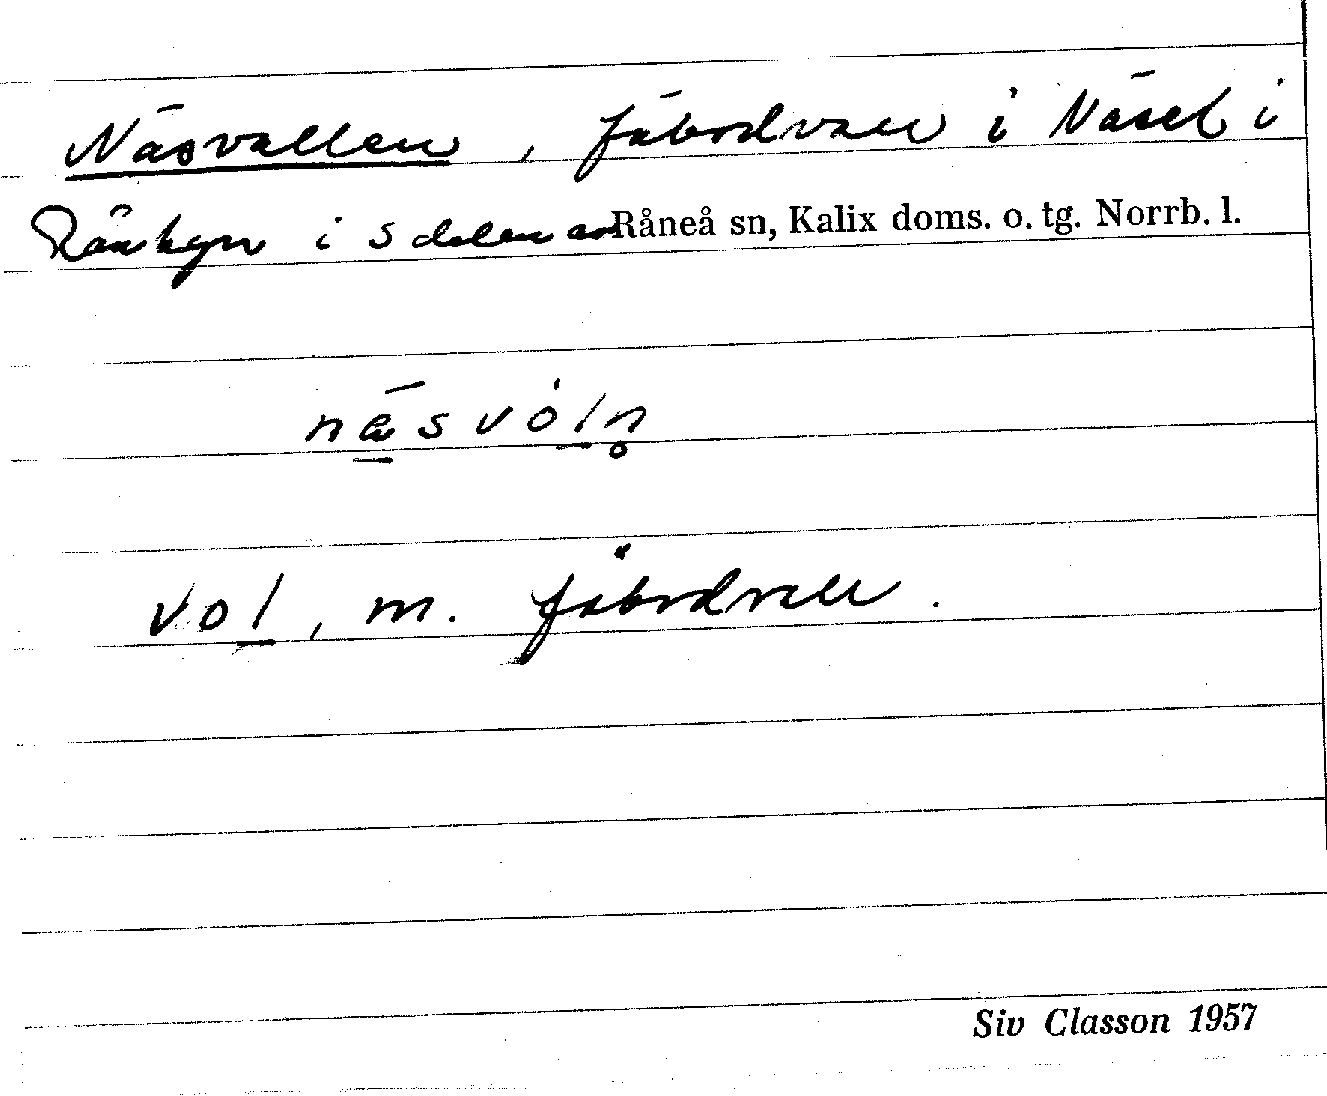 Näsvallen, fäbodvall i Näset i
Rånbyn i S delen av Råneå sn, Kalix doms. o. tg. Norrb. l.
näsvòln̥
vol, m. fäbodvall.
Siv Classon 1957